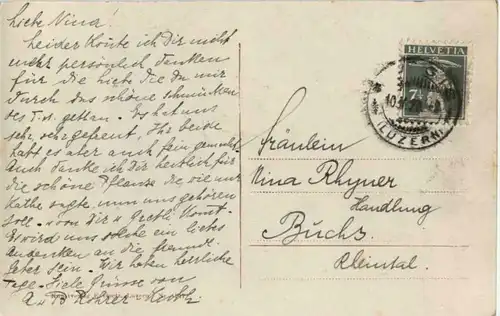 Liebe Nina!
Leider konte ich Dir nicht
mehr persönlich danken
für die Liebe die Du mir
durch das schöne schmücken
des getan. Es hat uns
sehr, sehr gefreut. Ihr beide
habt es aber auch fein gemacht
Auch danke ich Dir herzlich für
die schöne Pflanze die wie mir
Käthe sagte, nun uns gehören
soll. von Dir &
Es wird uns solche ein liebes
Andenken an die
sein. Wir haben herrliche
Tage. Viele Grüsse von
HELVETIA
7½
LUZERN
Fräulein
Nina Rhyner
Handlung
Buchs
Rheintal.